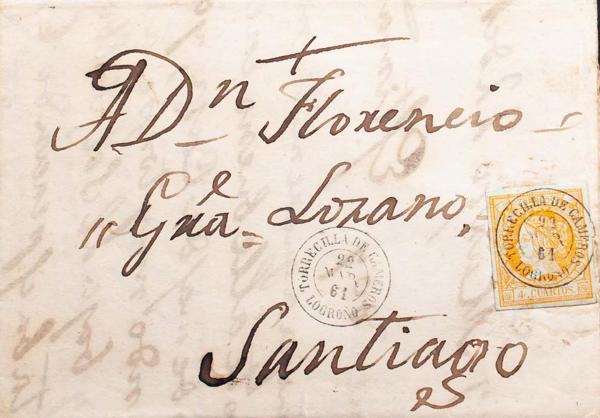 A Dn Florencio
Gra Lozano,
TORRECILLA DE CAMEROS
22
MAR
61
LOGROÑO
TORRECILLA DE CAMEROS
22
61
LOGROÑO
4 CUARTOS
Santiago